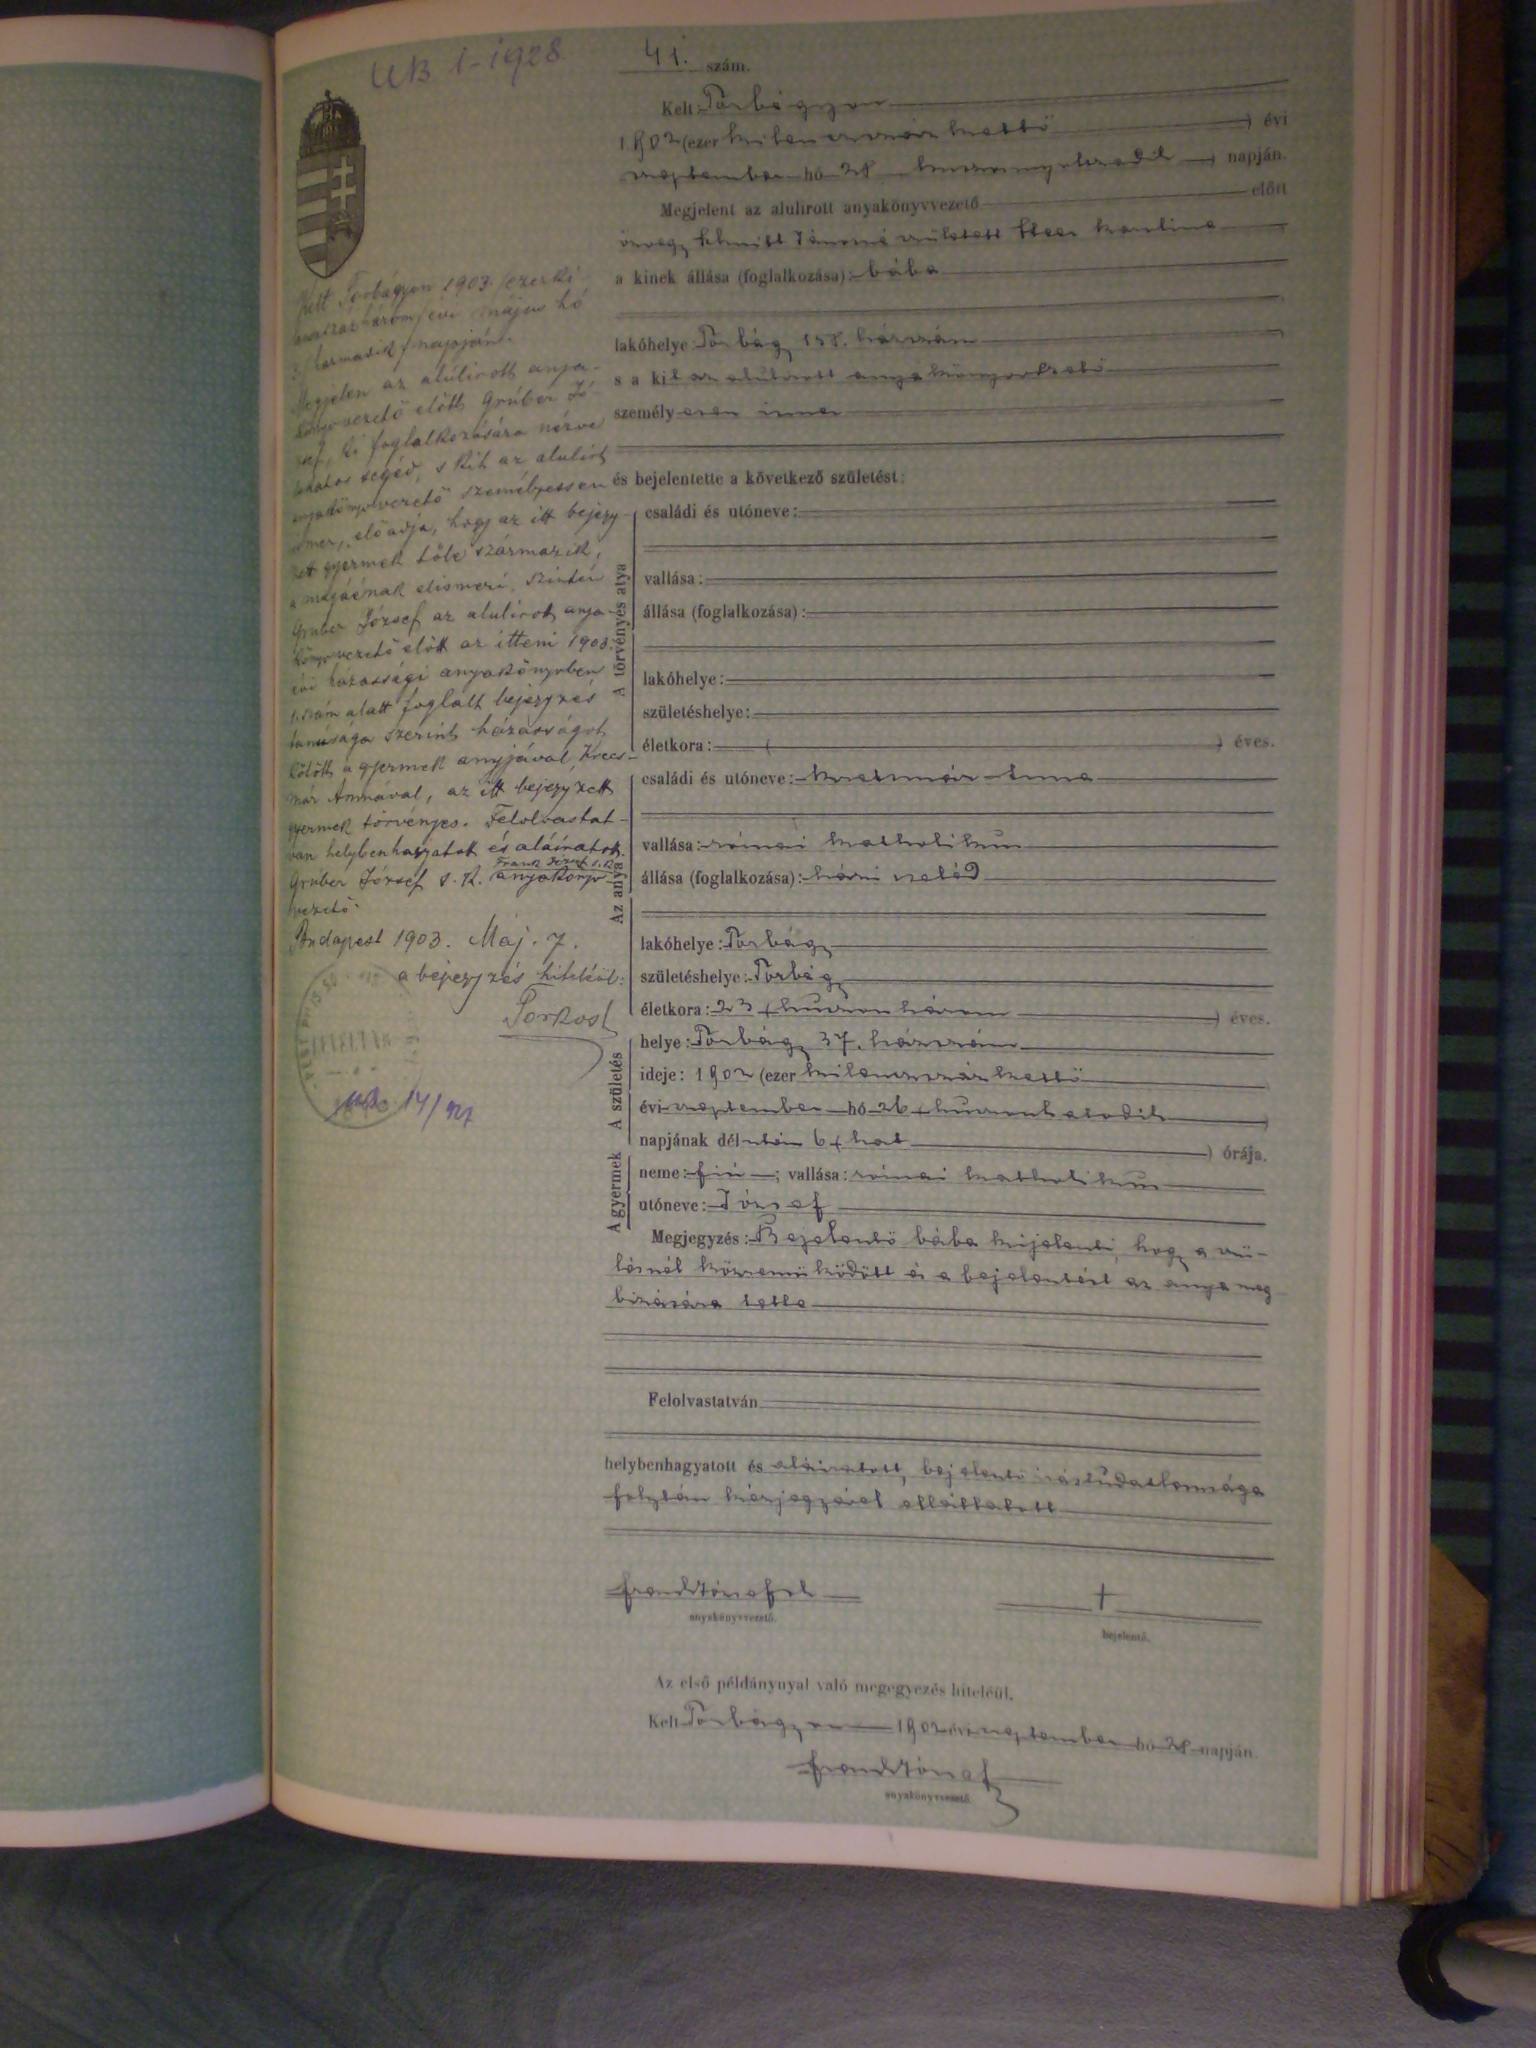 UB 1-1928
41. szám.
Kelt Torbágyon
1902 (ezer kilenczszáz kettő ) évi
szeptember hó 28 huszonnyolczadik napján.
Megjelent az alulirott anyakönyvvezető előtt
özvegy Schmitt Jánosné született Karlina
a kinek állása (foglalkozása): bába
lakóhelye Torbágy 158. házszám
s a kit az alulirott anyakönyvvezető
személyesen ismer
és bejelentette a következő születést:
A törvényes atya
családi és utóneve:
vallása:
állása (foglalkozása):
lakóhelye:
születéshelye:
életkora: ( ) éves.
Az anya
családi és utóneve: Krecsmár Anna
vallása: római katholikus
állása (foglalkozása): házi cseléd
lakóhelye: Torbágy
születéshelye: Torbágy
életkora: 23 (huszonhárom ) éves.
A születés
helye: Torbágy 37. házszám
ideje: 1902 (ezer kilenczszáz kettő
évi szeptember hó 26 (huszonhatodik )
napjának délután 6 (hat ) órája.
A gyermek
neme: fiú ; vallása: római katholikus
utóneve: József
Megjegyzés: Bejelentő bába kijelenti, hogy a szü-
lésnél közreműködött és a bejelentést az anya meg
bizására tette
Felolvastatván
helybenhagyatott és aláiratott, bejelentő irástudatlansága
folytán kézjegyével elláttatott
Frank József s. k. +
anyakönyvvezető. bejelentő.
Az első példánynyal való megegyezés hiteléül.
Kelt Torbágyon 1902 évi szeptember hó 28 napján.
Frank József
anyakönyvvezető
Kelt Torbágyon 1903 /ezerki
lenczszázhárom/ évi május hó
3/harmadik/ napján.
Megjelen az alulirott anya-
könyvvezető előtt Gruber Jó-
zsef, ki foglalkozására nézve
lakatos segéd, s kit az alulirt
anyakönyvvezető személyessen
ismer, előadja, hogy az itt bejegy-
zett gyermek tőle származik,
a magáénak elismeri, szintén
Gruber József az alulirott anya-
könyvvezető előtt az itteni 1903.
évi házassági anyakönyvben
szám alatt foglalt bejegyzés
tanúsága szerint házasságot
kötött a gyermek anyjával Krecs-
már Annával, az itt bejegyzett
gyermek törvényes. Felolvastat-
ván helybenhagyatott és aláiratott.
Frank József s. k.
Gruber József s. k. anyakönyv-
vezető.
Budapest 1903. Máj. 7.
a bejegyzés hiteléül:
Porkost
14/927